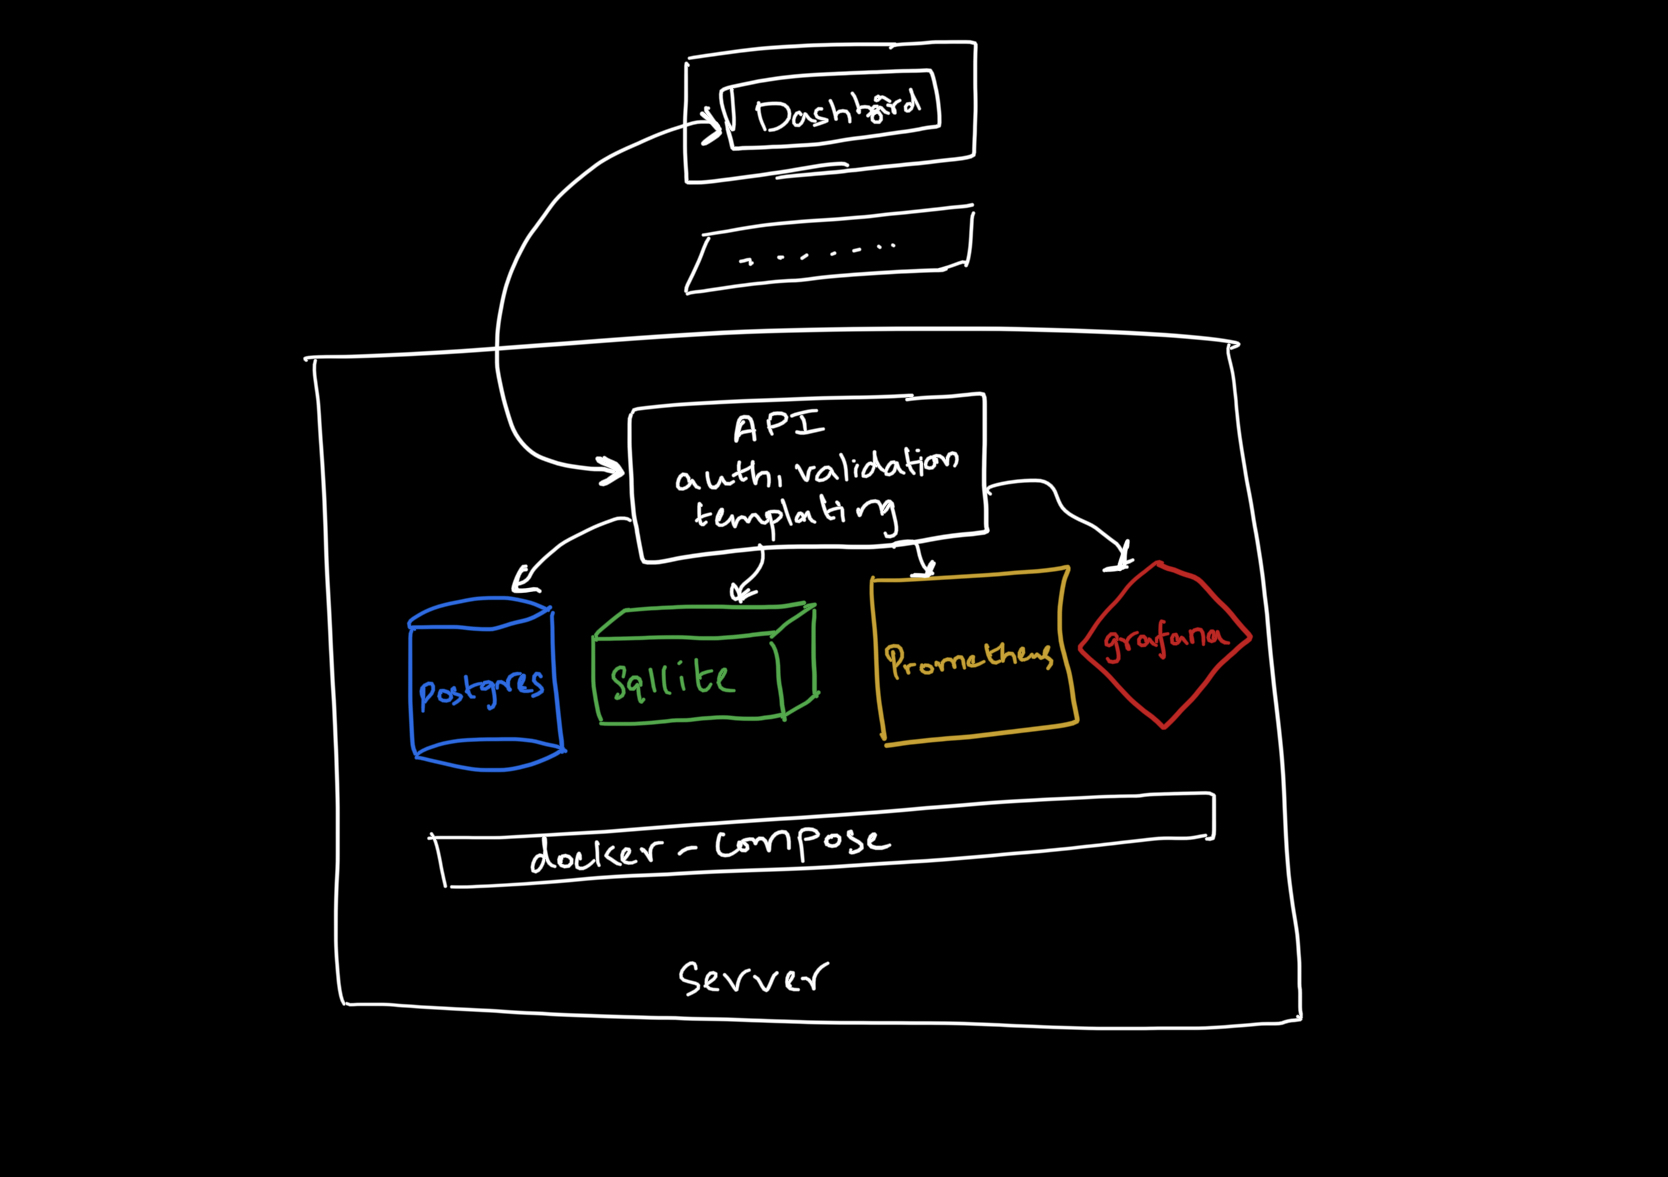 Dashboard
API
auth, validation
templating
Postgres
Sqllite
Prometheus
grafana
docker-compose
Server